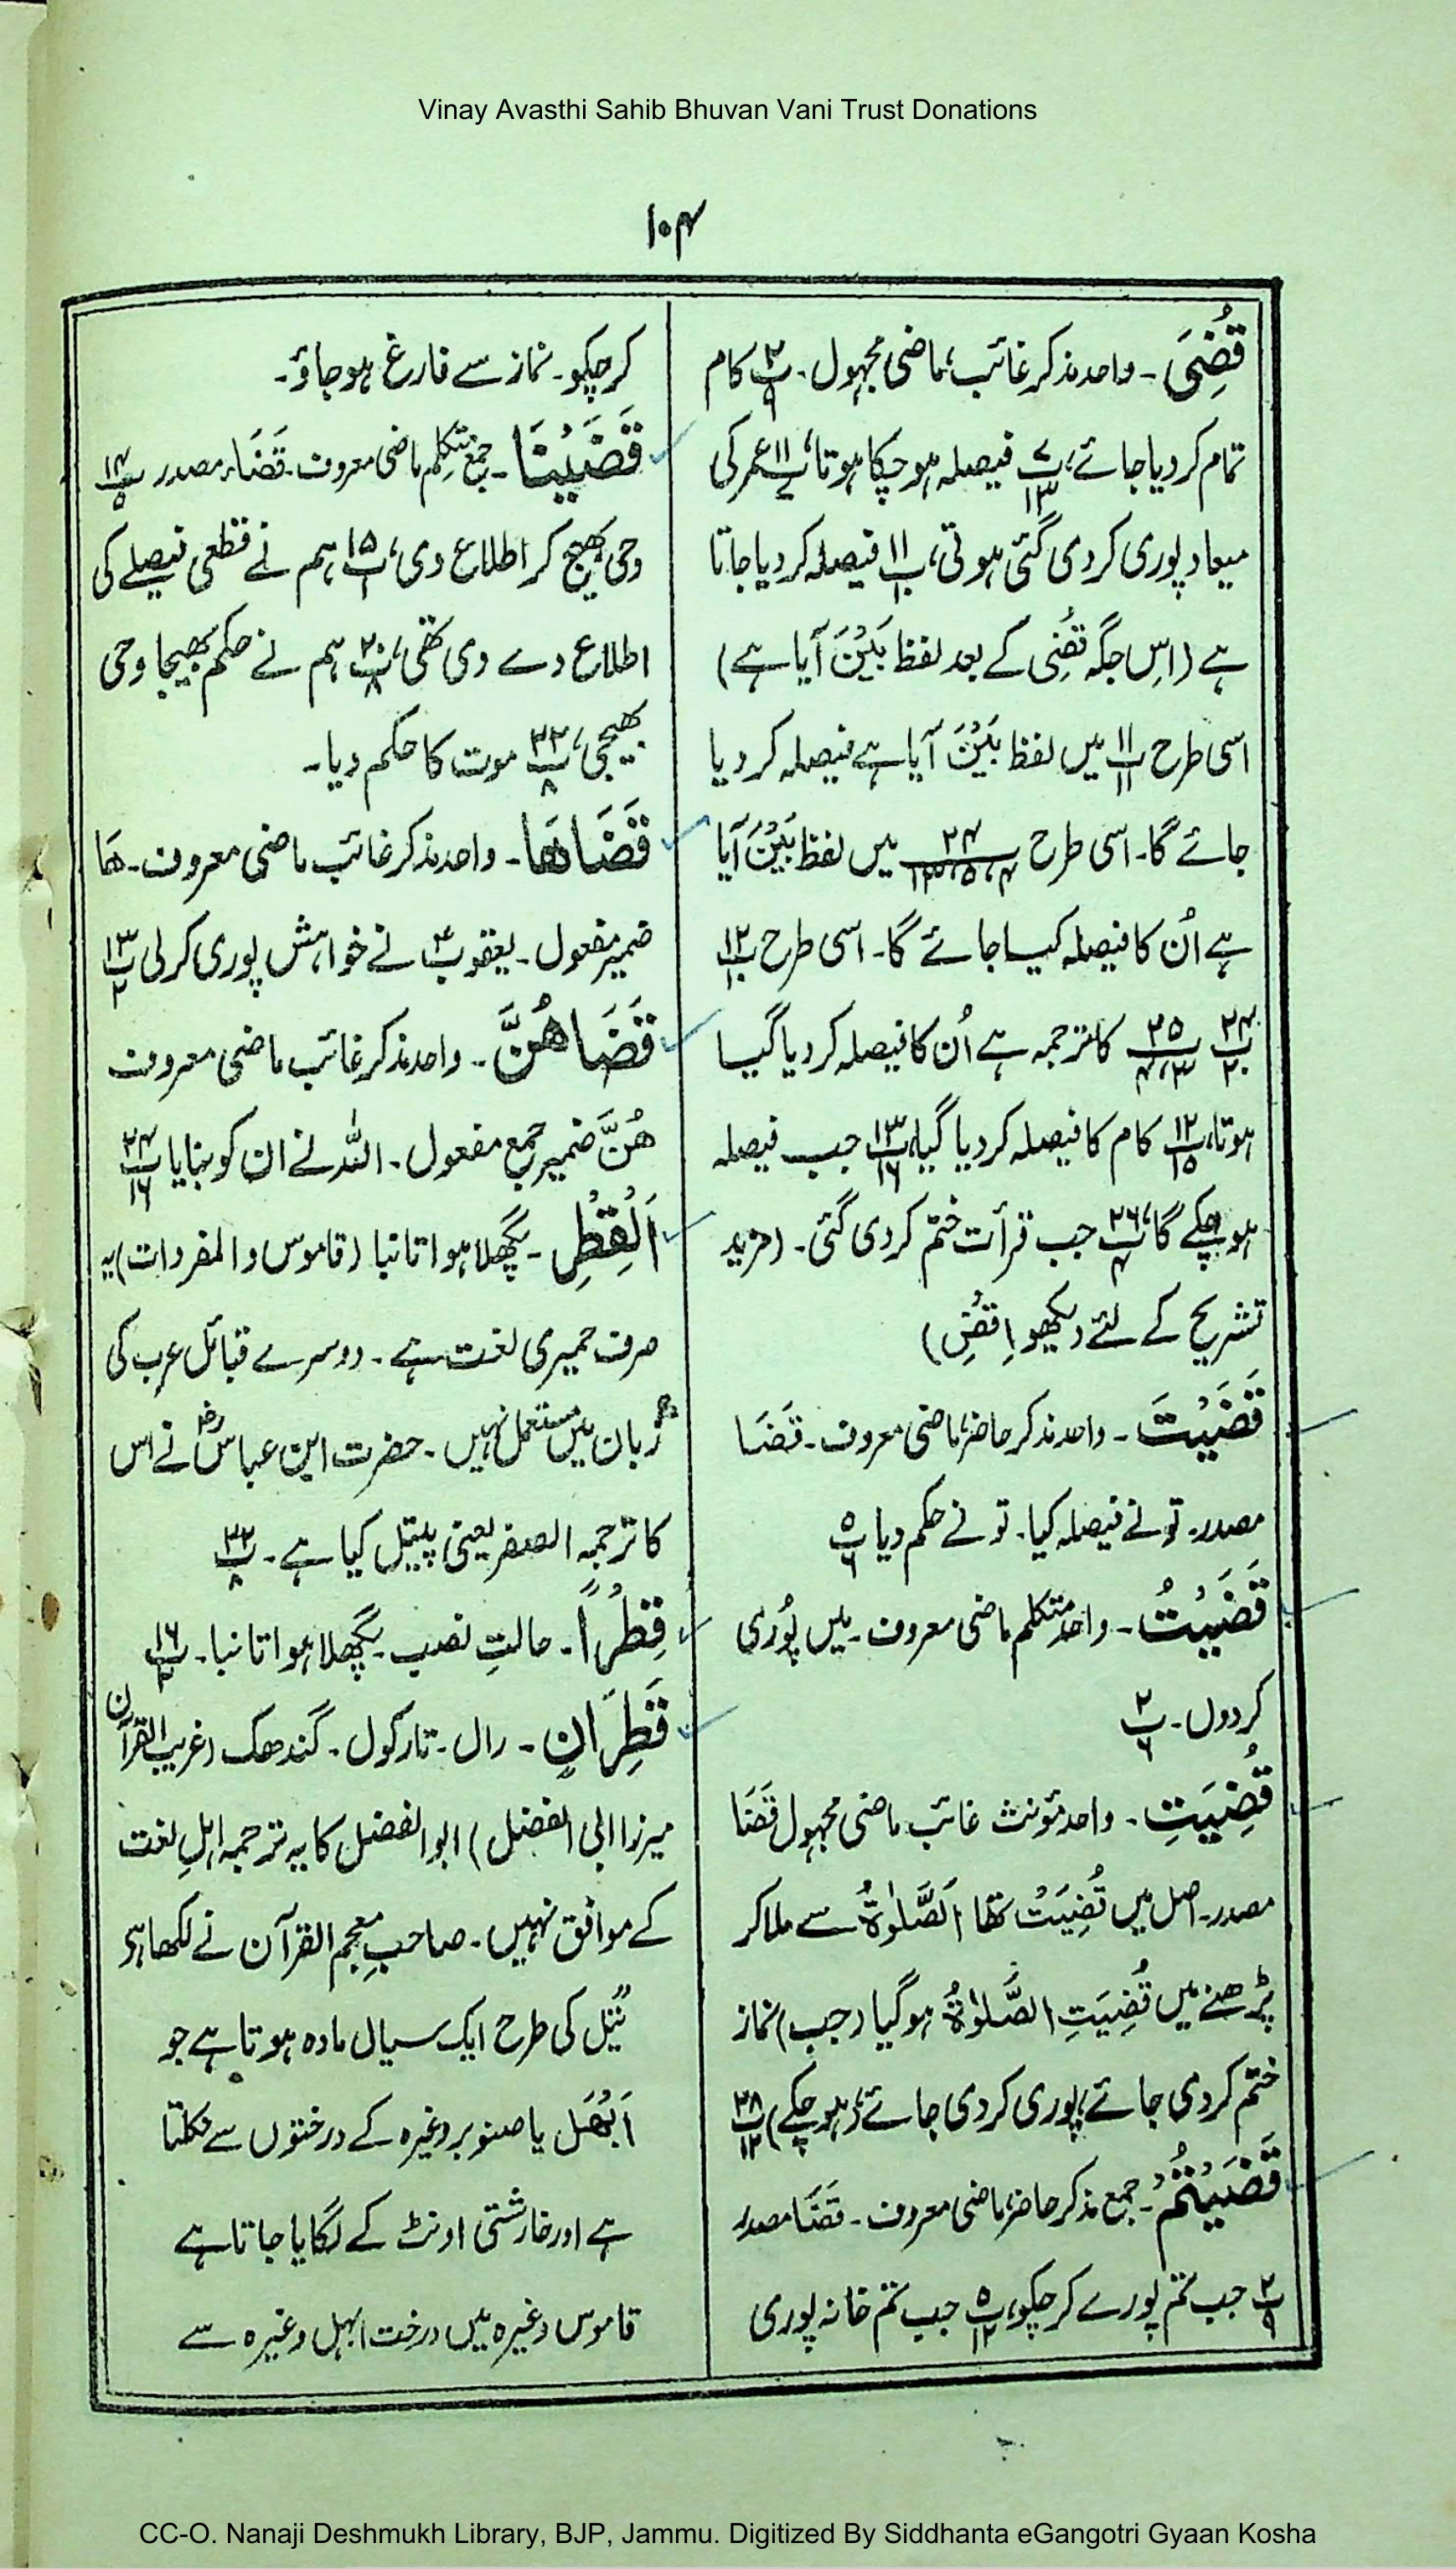 Vinay Avasthi Sahib Bhuvan Vani Trust Donations
۱۰۴
قُضِیَ ۔ واحد مذکر غائب، ماضی مجہول۔ پ۲/۹ کام
تمام کر دیا جائے، پ۷/۱۳ فیصلہ ہو چکا ہوتا، پ۱۱/۷ عمر کی
میعاد پوری کر دی گئی ہوتی، پ۱۱/۱۰ فیصلہ کر دیا جاتا
ہے (اِس جگہ قُضِیَ کے بعد لفظ بَیْنَ آیا ہے)
اسی طرح پ۱۱/۱۱ میں لفظ بَیْنَ آیا ہے فیصلہ کر دیا
جائے گا۔ اسی طرح ۲۴/۴،۵،۱۳ میں لفظ بَیْنَ آیا
ہے اُن کا فیصلہ کیا جائے گا۔ اسی طرح پ۱۲/۱۰
پ۲۴/۲۰ ۲۵/۳،۴ کا ترجمہ ہے اُن کا فیصلہ کر دیا گیا
ہوتا، پ۱۲/۱۵ کام کا فیصلہ کر دیا گیا، پ۱۳/۱۶ جب فیصلہ
ہو چکے گا، پ۲۶/۴ جب قرأت ختم کر دی گئی۔ (مزید
تشریح کے لئے دیکھو اِقْضِ)
قَضَیْتَ ۔ واحد مذکر حاضر، ماضی معروف۔ قَضَا
مصدر۔ تو نے فیصلہ کیا۔ تو نے حکم دیا پ۵/۶
قَضَیْتُ ۔ واحد متکلم ماضی معروف۔ میں پُوری
کر دوں۔ پ۲۰/۶
قُضِیَتِ ۔ واحد مؤنث غائب ماضی مجہول قَضَا
مصدر۔ اصل میں قُضِیَتْ تھا اَلصَّلٰوۃُ سے ملا کر
پڑھنے میں قُضِیَتِ الصَّلٰوۃُ ہو گیا (جب) نماز
ختم کر دی جائے، پوری کر دی جائے، (ہو چکے) پ۲۸/۱۲
قَضَیْتُمْ ۔ جمع مذکر حاضر، ماضی معروف۔ قَضَا مصدر
پ۲/۹ جب تم پورے کر چکو، پ۵/۱۲ جب تم خانہ پوری
کر چکو۔ نماز سے فارغ ہو جاؤ۔
قَضَیْنَا ۔ جمع متکلم ماضی معروف۔ قَضَاء مصدر پ۱۴/۵
وحی بھیج کر اطلاع دی، پ۱۵/۱ ہم نے قطعی فیصلے کی
اطلاع دے دی تھی، پ۲۰/۸ ہم نے حکم بھیجا وحی
بھیجی، پ۲۲/۸ موت کا حکم دیا۔
قَضَاھَا ۔ واحد مذکر غائب ماضی معروف۔ ھَا
ضمیر مفعول۔ یعقوبؑ نے خواہش پوری کر لی پ۱۳/۲
قَضَاھُنَّ ۔ واحد مذکر غائب ماضی معروف
ھُنَّ ضمیر جمع مفعول۔ اللہ نے ان کو بنایا پ۲۴/۱۶
اَلْقِطْرِ ۔ پگھلا ہوا تانبا (قاموس و المفردات) یہ
صرف حمیری لغت ہے۔ دوسرے قبائل عرب کی
زبان میں مستعمل نہیں۔ حضرت ابن عباسؓ نے اس
کا ترجمہ الصفر یعنی پیتل کیا ہے۔ پ۲۲/۸
قِطْرًا ۔ حالتِ نصب۔ پگھلا ہوا تانبا۔ پ۱۶/۲
قَطِرَانٍ ۔ رال۔ تارکول۔ گندھک (غریب القرآن
میرزا ابی الفضل) ابو الفضل کا یہ ترجمہ اہلِ لغت
کے موافق نہیں۔ صاحبِ معجم القرآن نے لکھا ہے
تیل کی طرح ایک سیال مادہ ہوتا ہے جو
اَبْھَل یا صنوبر وغیرہ کے درختوں سے نکلتا
ہے اور خارشتی اونٹ کے لگایا جاتا ہے
قاموس وغیرہ میں درخت ابہل وغیرہ سے
CC-O. Nanaji Deshmukh Library, BJP, Jammu. Digitized By Siddhanta eGangotri Gyaan Kosha